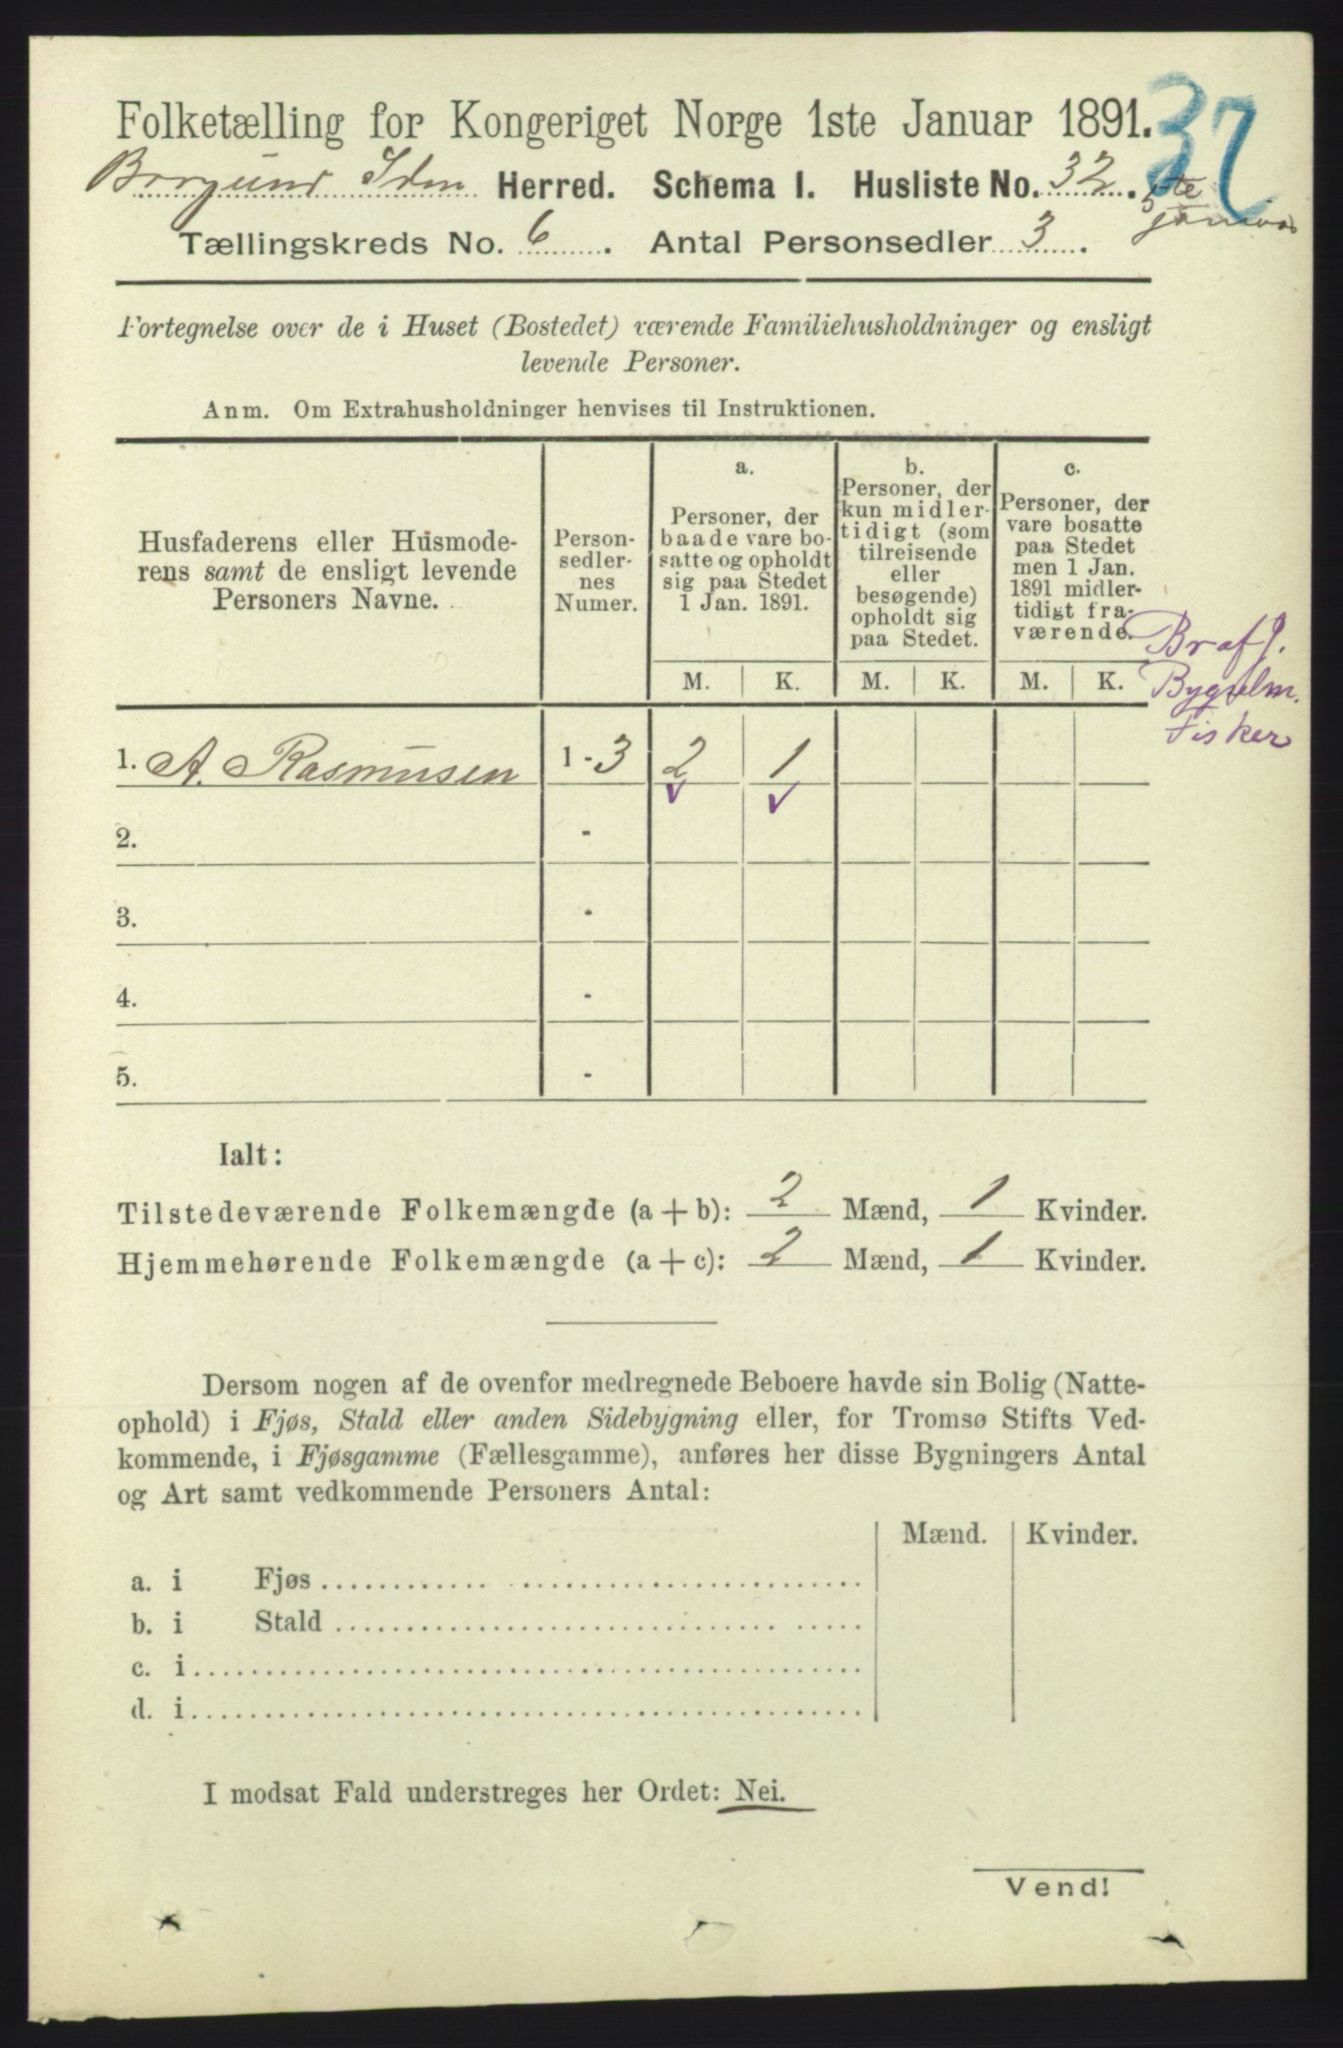 Folketælling for Kongeriget Norge 1ste Januar 1891.
32
Borgund Herred. Schema I. Husliste No. 32.
5te Januar
Tællingskreds No. 6. Antal Personsedler 3.
Fortegnelse over de i Huset (Bostedet) værende Familiehusholdninger og ensligt
levende Personer.
Anm. Om Extrahusholdninger henvises til Instruktionen.
Husfaderens eller Husmode-
rens samt de ensligt levende
Personers Navne.
Person-
sedler-
nes
Numer.
a.
Personer, der
baade vare bo-
satte og opholdt
sig paa Stedet
1 Jan. 1891.
b.
Personer, der
kun midler-
tidigt (som
tilreisende
eller
besøgende)
opholdt sig
paa Stedet.
c.
Personer, der
vare bosatte
paa Stedet
men 1 Jan.
1891 midler-
tidigt fra-
værende.
M. K. M. K. M. K.
Br af J.
Bygselm.
Fisker
1. A. Rasmusen 1 - 3 2 1
2. -
3. -
4. -
5. -
Ialt:
Tilstedeværende Folkemængde (a + b): 2 Mænd, 1 Kvinder.
Hjemmehørende Folkemængde (a + c): 2 Mænd, 1 Kvinder.
Dersom nogen af de ovenfor medregnede Beboere havde sin Bolig (Natte-
ophold) i Fjøs, Stald eller anden Sidebygning eller, for Tromsø Stifts Ved-
kommende, i Fjøsgamme (Fællesgamme), anføres her disse Bygningers Antal
og Art samt vedkommende Personers Antal:
Mænd. Kvinder.
a. i Fjøs
b. i Stald
c. i
d. i
I modsat Fald understreges her Ordet: Nei.
Vend!